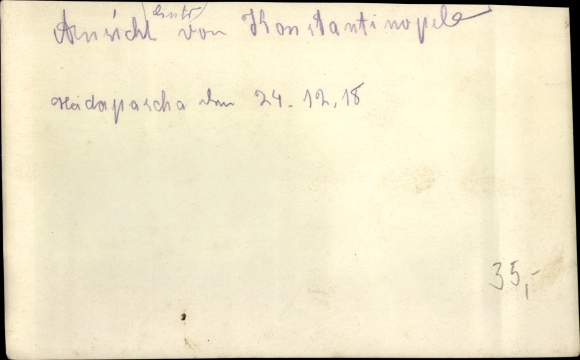 Ansicht von Konstantinopel
Haidapascha den 24. 12. 18
35,-